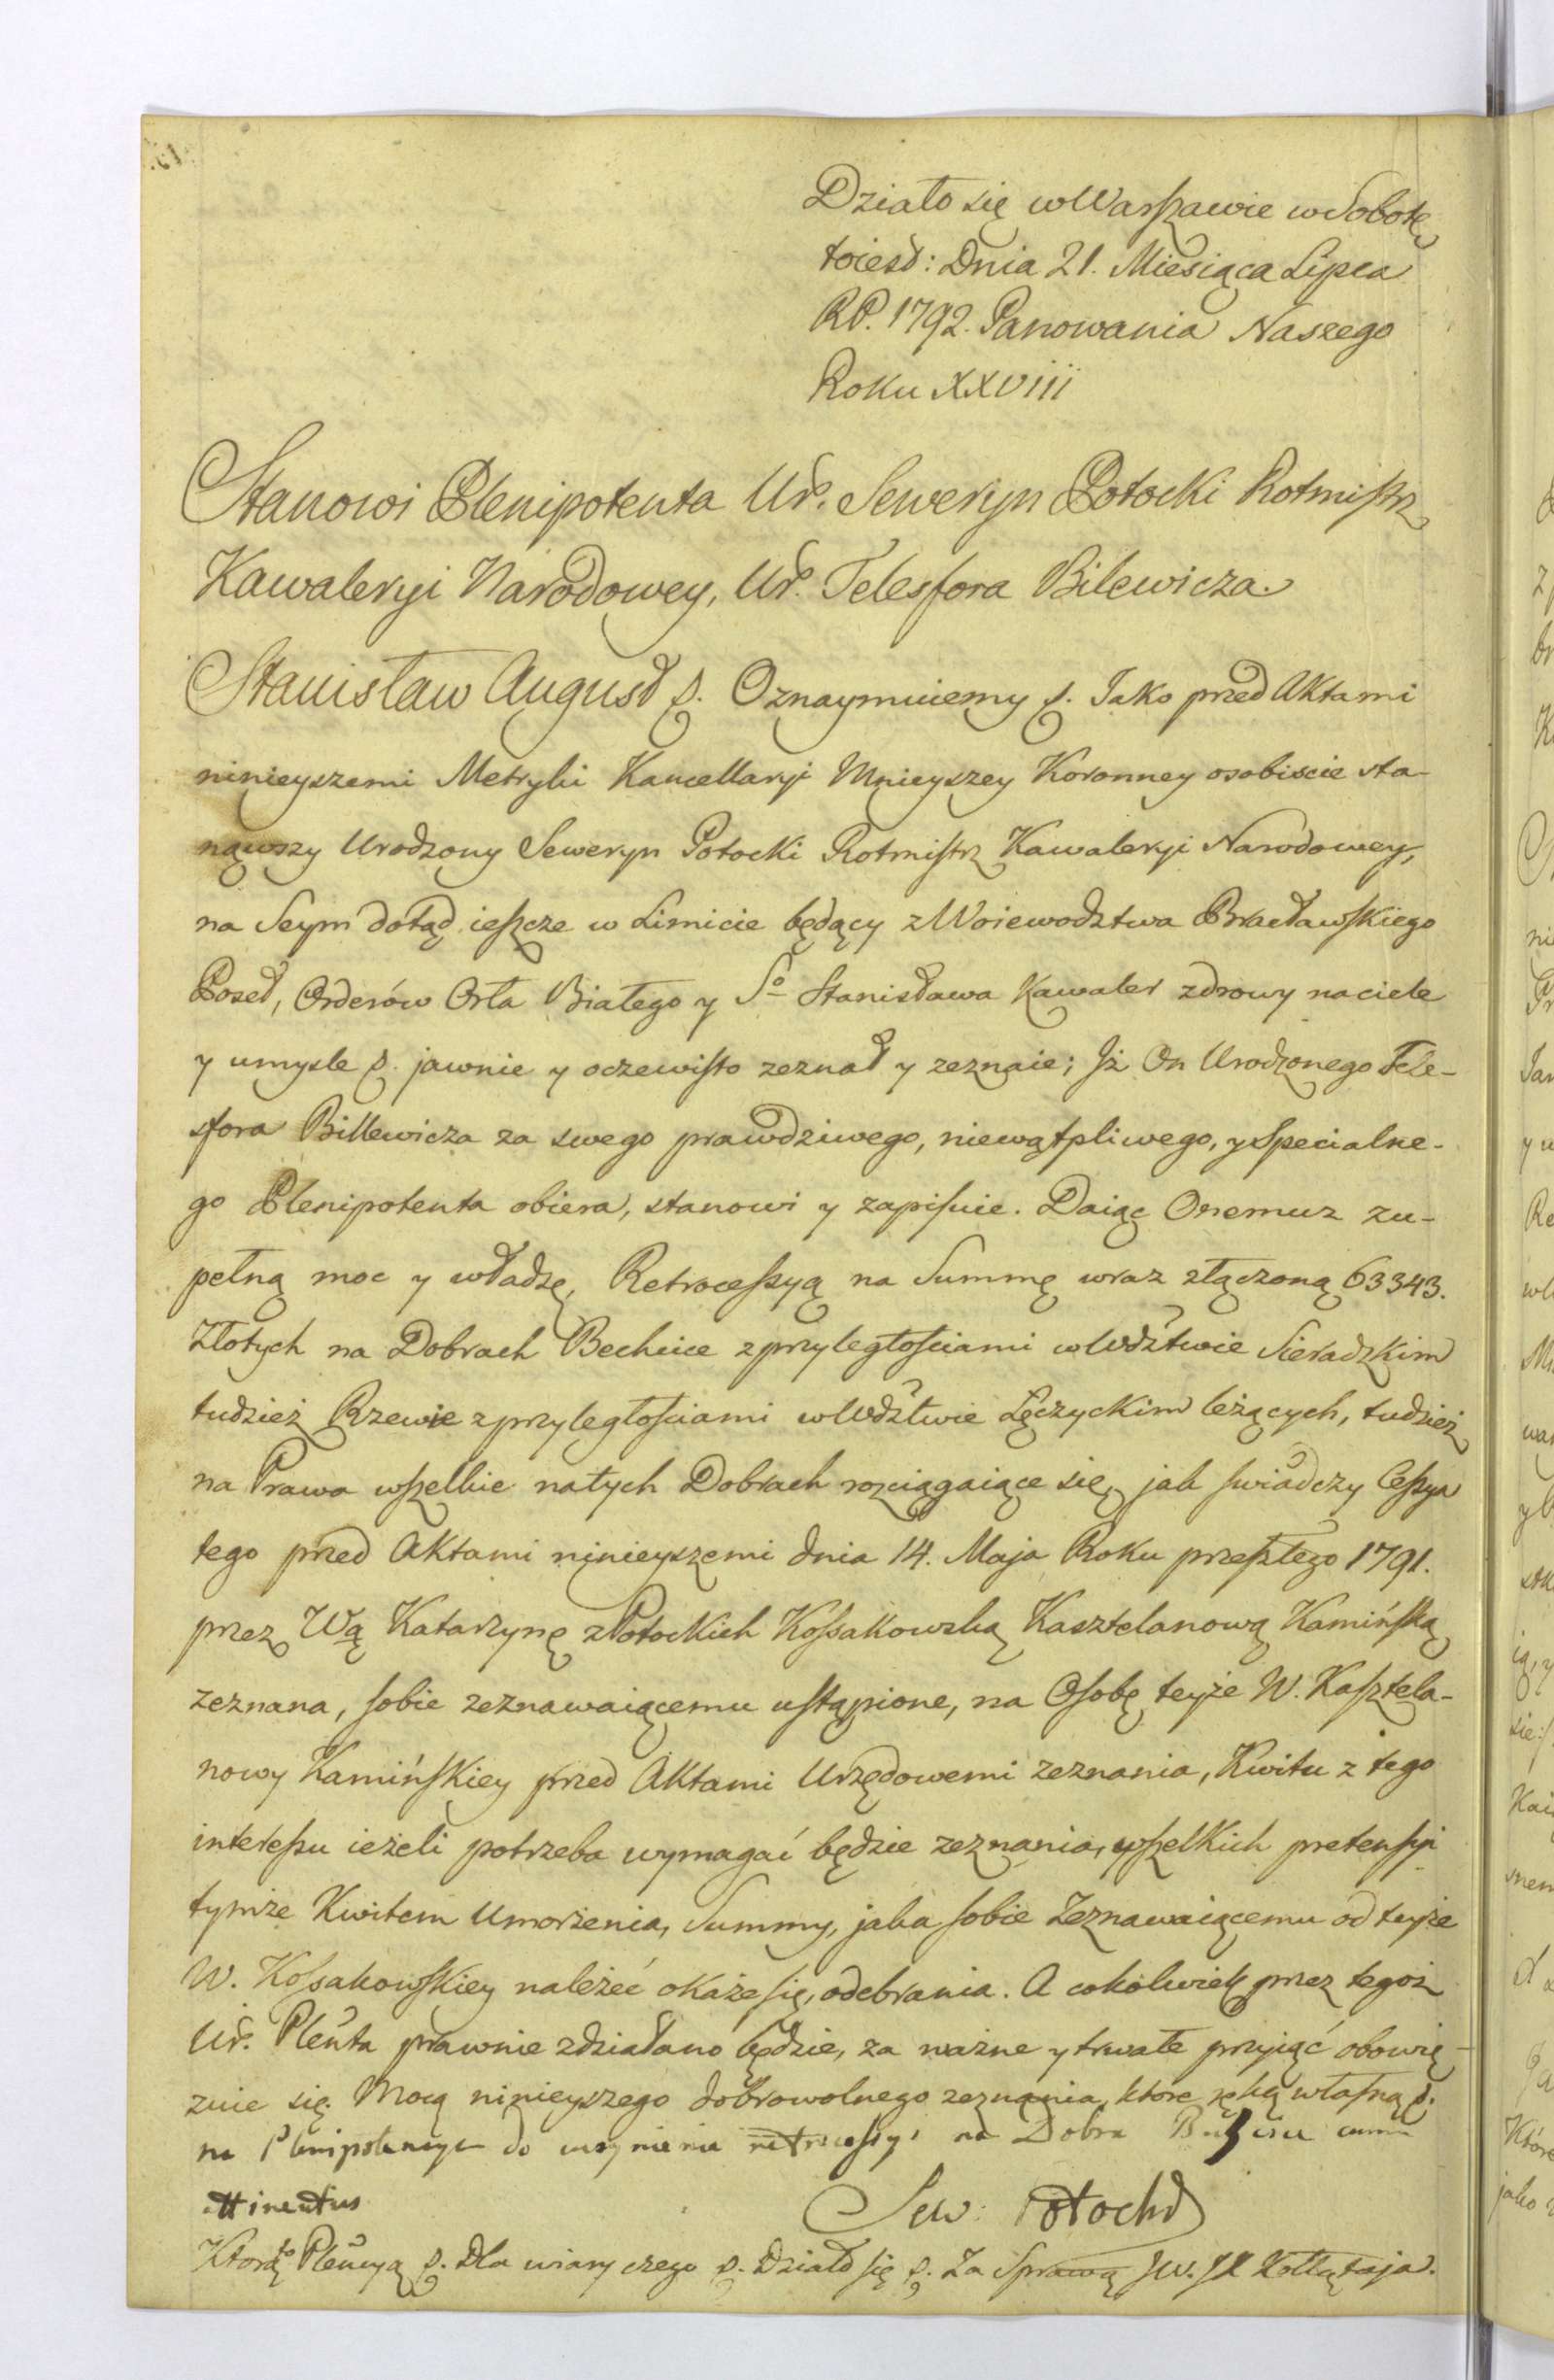 Działo się w Warszawie w Sobotę
toiest: Dnia 21. Miesiąca Lipca
RP. 1792. Panowania Naszego
Roku XXVIII
Stanowi Plenipotenta Ur. Seweryn Potocki Rotmistrz
Kawaleryi Narodowey, Ur. Telesfora Bilewicza.
Stanisław August p. Oznaymuiemy p. Jako przed Aktami
ninieyszemi Metryki Kancellaryi Mnieyszey Koronney osobiscie sta-
nąwszy Urodzony Seweryn Potocki Rotmistrz Kawaleryi Narodowey,
na Seym dotąd ieszcze w Limicie będący z Woiewodztwa Bracławskiego
Poseł, Orderów Orła Białego y So Stanisława Kawaler zdrowy na ciele
y umysle p. jawnie y oczewisto zeznał y zeznaie; Jż On Urodzonego Tele-
sfora Billewicza za swego prawdziwego, niewątpliwego, y specialne-
go Plenipotenta obiera, stanowi y zapisuie. Daiąc Onemuz zu-
pełną moc y władzę, Retrocessyą na Summę wraz złączoną 63343.
Złotych na Dobrach Bechcice z przyległościami w Wdztwie Sieradzkim
tudzież Rzewie z przyległościami w Wdztwie Łęczyckim leżących, tudzież
na Prawa wszelkie na tych Dobrach rozciągaiące się, jak swiadczy Cessya
tego przed Aktami ninieyszemi dnia 14. Maja Roku przeszłego 1791.
przez Wą Katarzynę z Potockich Kossakowską Kasztelanową Kamińską
zeznana, sobie zeznawaiącemu ustąpione, na Osobę teyże W. Kasztela-
nowy Kamińskiey przed Aktami Urzędowemi zeznania, Kwitu z tego
interessu ieżeli potrzeba wymagać będzie zeznania, wszelkich pretensyi
tymże Kwitem Umorzenia, Summy, jaka sobie Zeznawaiącemu od teyże
W. Kossakowskiey należeć okaże się, odebrania. A cokolwiek przez tegoż
Ur. Plenta prawnie zdziałano będzie, za ważne y trwałe przyiąć obowią-
zuie się. Mocą ninieyszego dobrowolnego zeznania, które ręką własną p.
na Plenipotencyę do uczynienia retrocessyi na Dobra cum
attinentus
Sew: Potocki
Którą to Plencyą p. Dla wiary czego p. Działo się p. Za Sprawą JW. JX Kołłątaja.